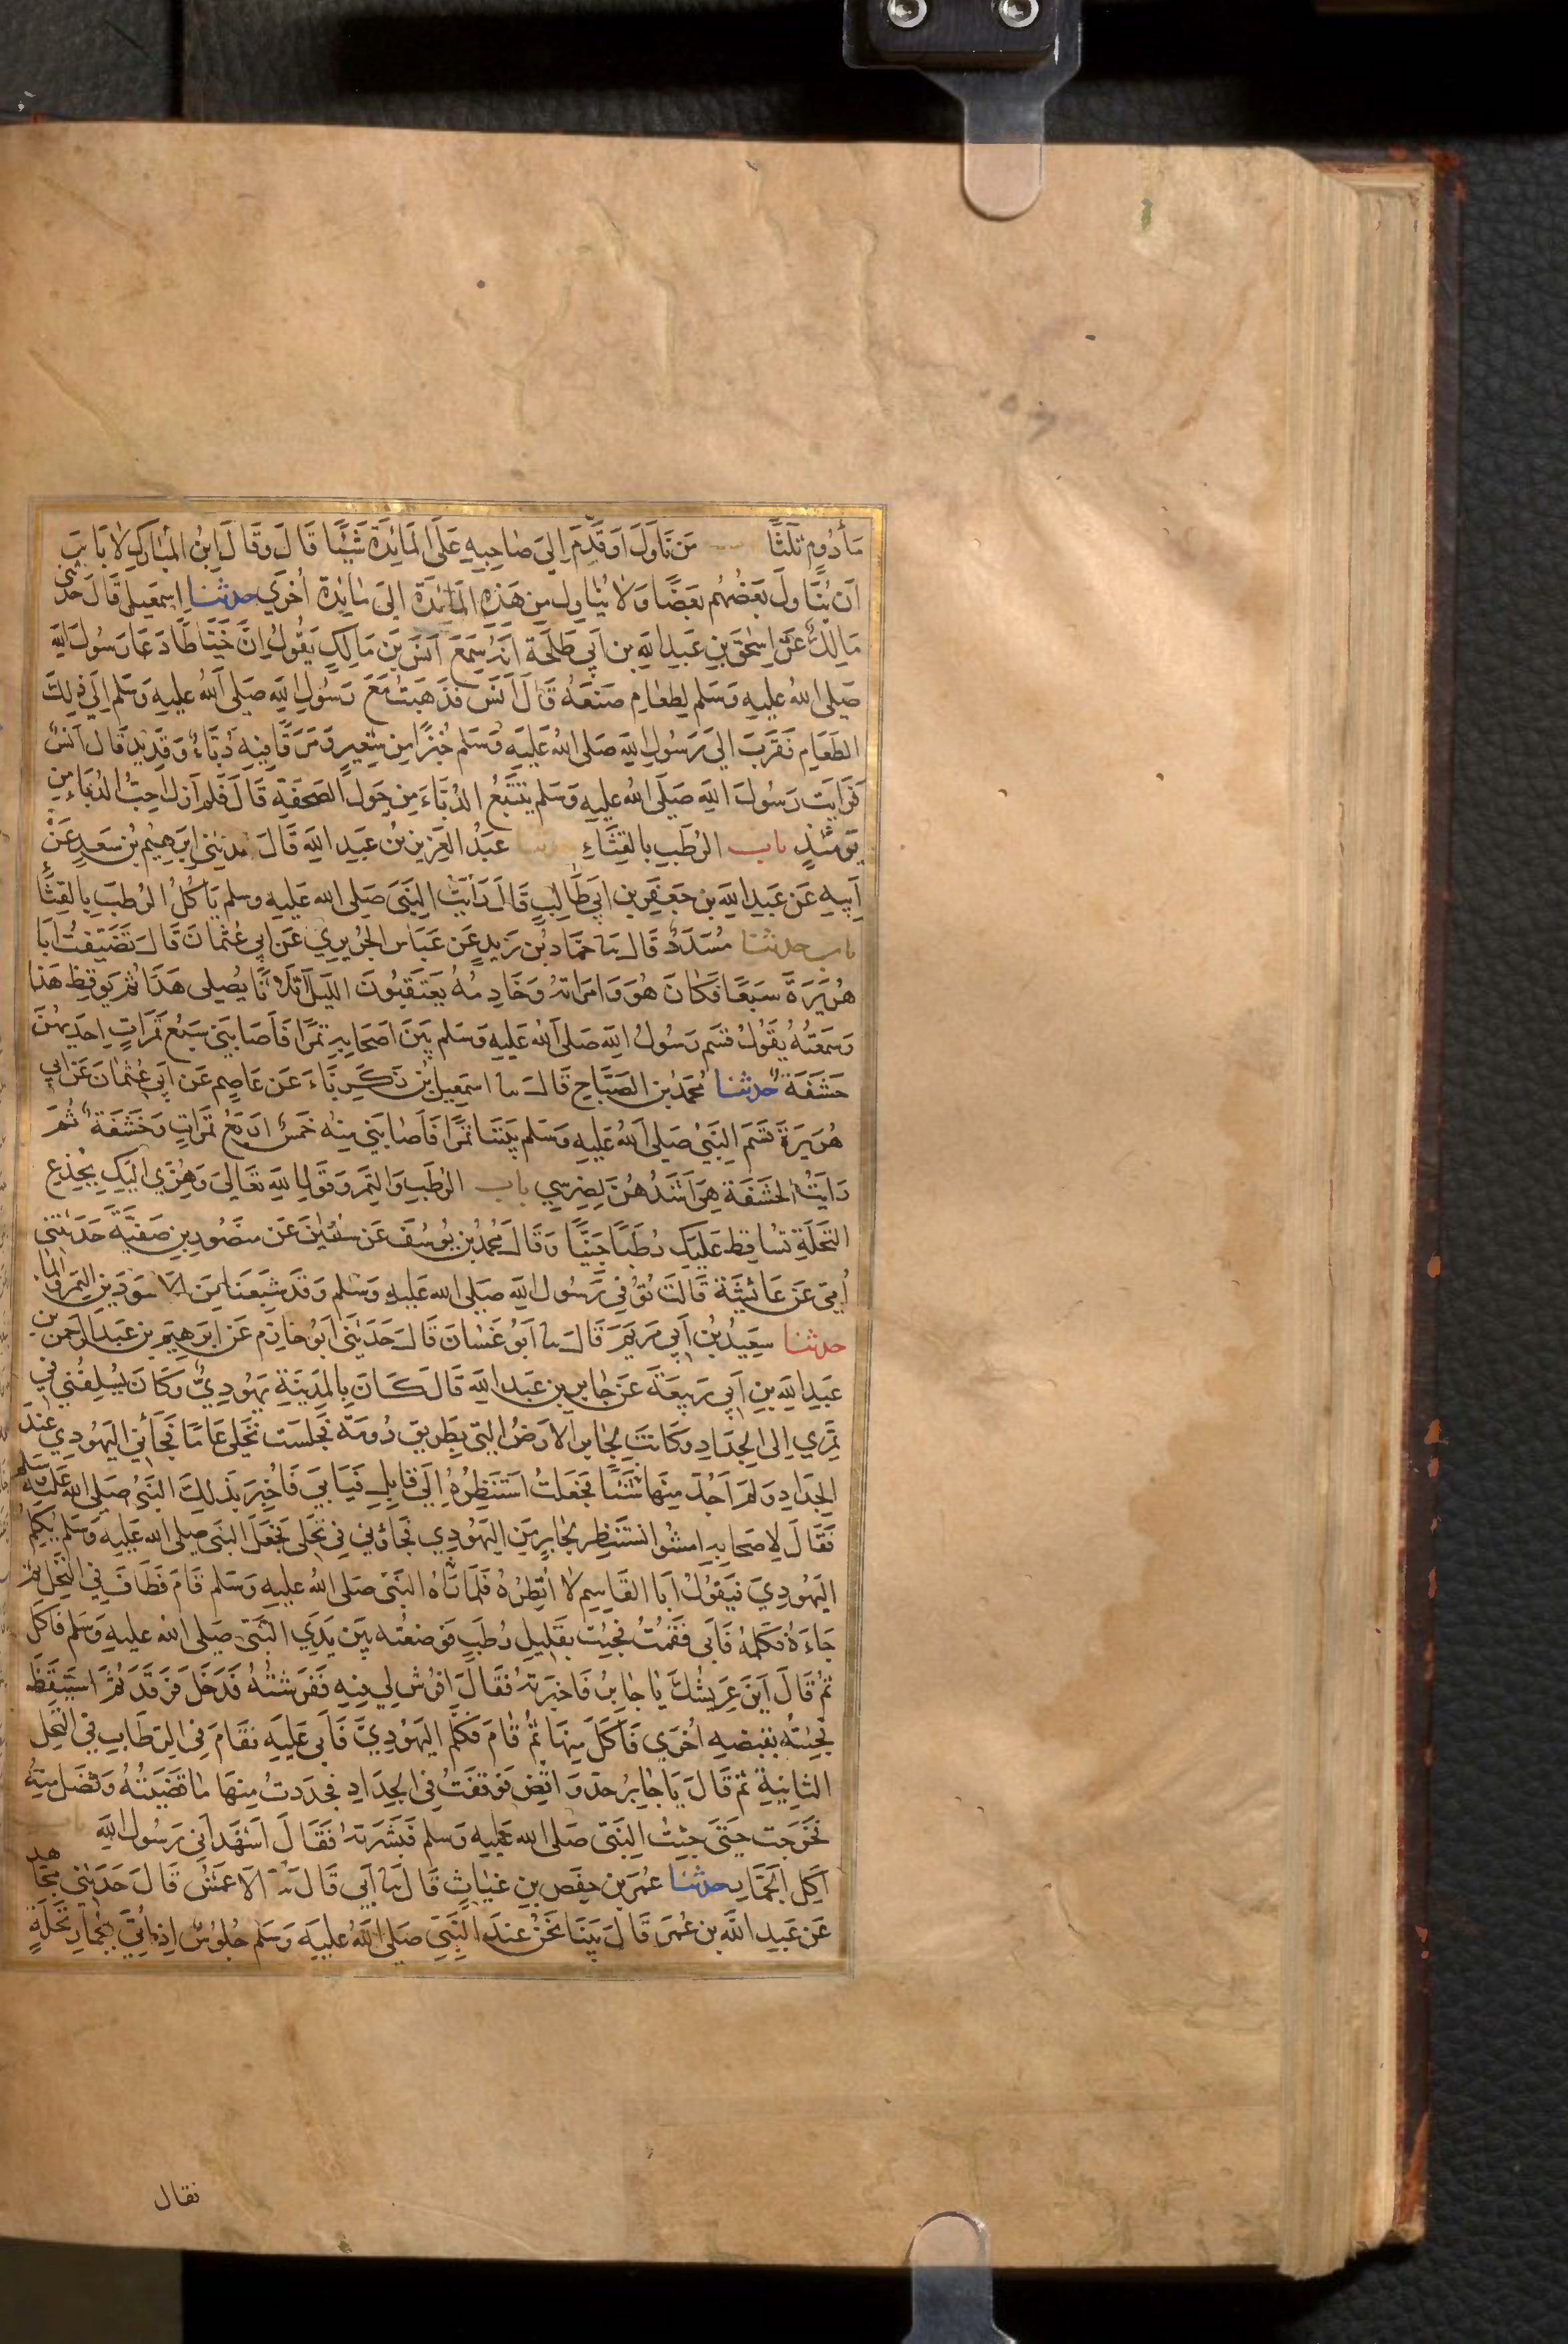 مَأْدُومٍ ثَلٰثًا مَن نَاوَلَ اَوقَدَّمَ اِلىَ صَاحِبِهِ عَلَى المَائِدَةِ شَيْئًا قَالَ وَقَالَ ابنُ المبٰارَكِ لَا بَاسَ
اَن يُنَاوِلَ بَعضُهُم بَعضًا وَلَا يُنٰاوِل مِن هَذِهِ المَائِدَةِ اِلىَ مٰائِدَةٍ اُخرَي حدثنا اِسمٰعيل قَالَ حَدثنى
مَالِكٌ عَن اِسحٰقَ بنِ عَبدِ اللهِ بنِ اَبِي طَلحَة اَنَّهُ سَمعَ اَنَسَ بنَ مَالِكٍ يَقُولُ اِنَّ خَيَّاطًا دَعَا رَسُولَ اللهِ
صَلى اللهُ عليهِ وَسَلم لِطعَامٍ صَنَعَهُ قَالَ اَنَس فذَهَبتُ مَعَ رَسُولِ اللهِ صَلى اللهُ عليهِ وَسَلم اِلى ذٰلِكَ
الطَعَامِ فَقَرَّبَ اِلىَ رَسُولِ اللهِ صَلى اللهُ عَليهِ وَسَلم خُبزًا مِن شَعِيرٍ وَمَرَقًا فِيهِ دُبَّاءٌ وَقَدِيدٌ قَالَ اَنَسٌ
فَرَايتُ رَسُولَ اللهِ صَلَى اللهُ عليهِ وَسَلم يَتَتَبَّعُ الدُبَّاءَ مِن حَولِ الصَحفَةِ قَالَ فَلَم اَزَل اُحِبُّ الدُّبَاءَ مِن
يَومَئذٍ باب الرُطَبِ بالقِثَّاءِ عَبدُ العَزِيزِ بنُ عَبدِ اللهِ قَالَ حَدثَنِي اِبرَهِيمُ بنُ سَعدٍ عَنْ
اَبِيهِ عَن عَبدِ اللهِ بن جَعفَرِ بن اَبي طَالِبٍ قَالَ رَأَيتُ النَبيَّ صَلى الله عليهِ وسلم يَاكُلُ الرُطَبَ بِالقِثَّاءِ
باب حدثنا مُسَدَدٌ قَالَ ثنا حَمَّادُ بنُ زَيدٍ عَن عَبَاسٍ الجُرَيرِيِ عَن اَبِي عُثمَانَ قَالَ تَضَيَّفتُ اَبَا
هُرَيرَةَ سَبعًا فَكَانَ هُوَ وَامرَاتُهُ وَخَادِمُهُ يَعتَقِبُونَ اللَيلَ اَثلَاثًا يُصَلى هَذَا ثُم يُوقِظ هَذا
وَسَمِعتُهُ يَقُولُ قسَمَ رَسُولُ اللهِ صَلى اللهُ عَليهِ وَسَلم بَينَ اَصحَابِهِ تمرًا فَاَصَابَنِي سَبعُ تَمَرَاتٍ اِحدَيهُنَّ
حَشَفَةٌ حدثنا مُحَمدُ بن الصَبَّاحِ قَالَ ثنا اسمٰعيل بن زَكَرِيَّاءَ عَن عَاصِمٍ عَن اَبِي عُثمَانَ عَن اَبي
هُرَيرَةَ قَسَمَ النَبيُّ صَلى اللهُ عليهِ وَسَلم بَينَنَا تمرًا فَاَصَابَنِي مِنه خَمسٌ اَربَعُ تَمَرَاتٍ وَحَشَفَةٌ ثُمَّ
رَايتُ الحَشَفَةَ هِيَ اَشَدُّهُنَّ لِضِرسِي باب الرُطَبِ وَالتَمرِ وَقَولِ اللهِ تعَالىَ وَهُزِّي اِلَيكِ بجِذعِ
النَّخلَةِ تَسَّاقَط عَلَيكِ رُطَبًا جَنِيًّا وَقَالَ مُحمدُ بن يُوسُفَ عَن سُفيٰنَ عَن مَنصُورِ بنِ صَفِيَّةَ حَدَثتنى
اُمِّي عَن عَائشَةَ قَالَت تُوُفِّيَ رَسُولُ اللهِ صَلى الله عَليهِ وَسَلم وَقَد شَبِعنَا مِنَ الاَسوَدَينِ التمرِ وَالمَاءِ
حدثنا سَعِيدُ بنُ اَبِي مَريَمَ قَالَ ثنا اَبوُ غَسَّانَ قَالَ حَدَثَنِي اَبوُ حَازِمٍ عَن اِبرَهِيمَ بنِ عَبدِ الرَحمَنِ بنِ
عَبدِ اللهِ بنِ اَبِي رَبِيعَةَ عَن جَابرِ بنِ عَبدِ اللهِ قَالَ كَانَ بِالمَدِينَةِ يَهُودِيٌّ وَكَانَ يُسلِفُنِي فِي
تَمرِي اِلى الجِدَادِ وَكَانَت لِجَابرٍ الاَرضُ التِي بِطَرِيقِ رُومَةَ فَجَلَسَت نَخلى عَامًا فَجَاءَنِي اليَهُودِي عِندَ
الجَدَادِ وَلَم اَجُدَّ مِنهَا شَئًا فَجَعَلتُ اَستَنظِرُهُ اِلى قَابِلٍ فَيَابَى فَاُخبِرَ بذٰلِكَ النَبيُّ صَلى الله عَليه وسلم
فَقَالَ لِاَصحَابِهِ امشُوا نَستَنظِر لجَابِرٍ مِنَ اليَهُودِيِ فَجَاؤُنِي فِي نَخلى فَجَعَلَ النَبي صلى الله عَليهِ وَسَلم يُكَلِّمُ
اليَهُودِيَ فَيَقُولُ اَبَا القَاسِمِ لَا اُنظِرُهُ فَلَمَا رَاهُ النَبيّ صَلى اللهُ عليهِ وَسَلم قَامَ فَطَافَ فِي النَخلِ ثُمَّ
جَاءَهُ فَكَلمَهُ فَاَبى فَقُمتُ فَجِئتُ بقَلِيلِ رُطَبٍ فوَضعتُه بَينَ يَدَيِ النَبيّ صَلى اللهُ عليهِ وَسَلم فَاَكَلَ
ثُمَّ قَالَ اَينَ عَرِيشُكَ يَا جَابِرُ فَاخبَرتُهُ فَقَالَ افرُش لِي فِيهِ فَفَرَشتُهُ فَدَخَلَ فَرَقَدَ ثُمَّ استَيقَظَ
فَجِئتُهُ بقَبضَهٍ اُخرَي فَاَكَلَ مِنهَا ثُمَّ قَامَ فَكَلَّمَ اليَهُودِيَّ فَاَبى عَليهِ فَقَامَ فِي الرِطَابِ فِي النَخلِ
الثَانِيَةَ ثُمَّ قَالَ يَا جَابِرُ جدَّ وَاقضِ فوَقفتُ فِي الجِدَادِ فَجَدَدتُ مِنهَا مَا قَضَيتُهُ وَفَضَلَ مِنهُ
فَخَرَجت حَتىَ جِئتُ النَبيّ صَلى الله عليهِ وسلم فَبَشَّرتهُ فَقَالَ اَشهَدُ اَنِّي رَسُولُ اللهِ
اَكلِ الجُمَّارِ حدثنا عُمَرُ بن حَفصِ بنِ غِيَاثٍ قَالَ ثنا اَبِي قَالَ ثنا الاَعمَشُ قَالَ حَدَثَنِي مُجَاهد
عَن عَبدِ اللهِ بن عُمَرَ قَالَ بَينَا نَحنُ عِندَ النَّبِيّ صَلَى اللهُ عَليهِ وَسَلم جُلُوسٌ اِذ اُتِيَ بِجُمَّارِ نَخلَةٍ
فقال